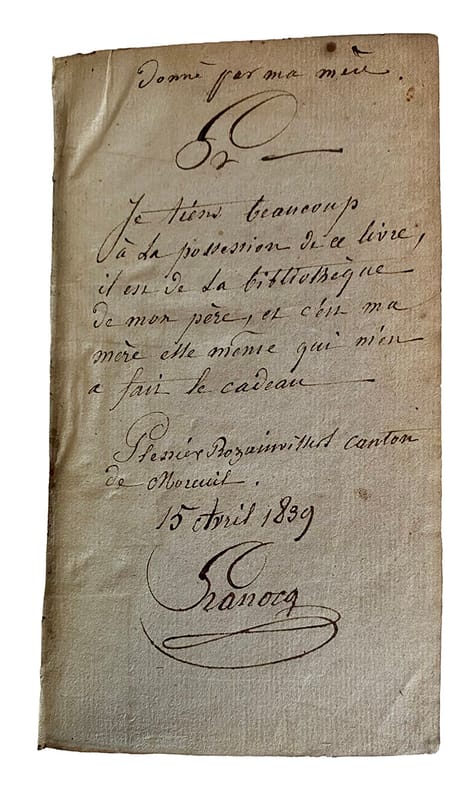 Donné par ma mère.
Je tiens beaucoup
à la possession de ce livre,
il est de la bibliothèque
de mon père, et c'est ma
mère elle même qui m'en
a fait le cadeau
Plessier Rozainvillers canton
de Moreuil.
15 Avril 1839